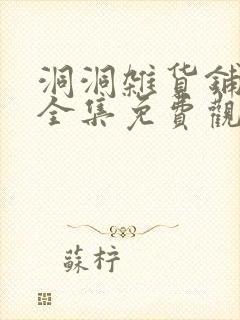 洞洞雜貨鋪
全集免費觀
蘇柠